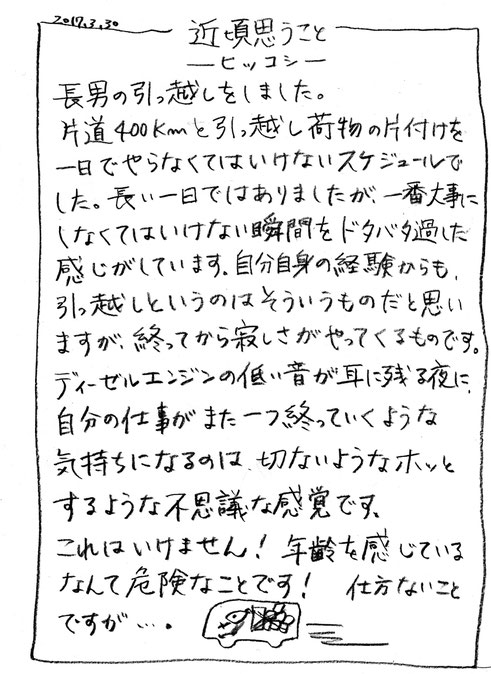 2017.3.30
近頃思うこと
―ヒッコシ―
長男の引っ越しをしました。
片道400Kmと引っ越し荷物の片付けを
一日でやらなくてはいけないスケジュールで
した。長い一日ではありましたが、一番大事に
しなくてはいけない瞬間をドタバタ過した
感じがしています。自分自身の経験からも、
引っ越しというのはそういうものだと思い
ますが、終ってから寂しさがやってくるものです。
ディーゼルエンジンの低い音が耳に残る夜に、
自分の仕事がまた一つ終っていくような
気持ちになるのは、切ないようなホッと
するような不思議な感覚です。
これはいけません！年齢を感じている
なんて危険なことです！ 仕方ないこと
ですが…。